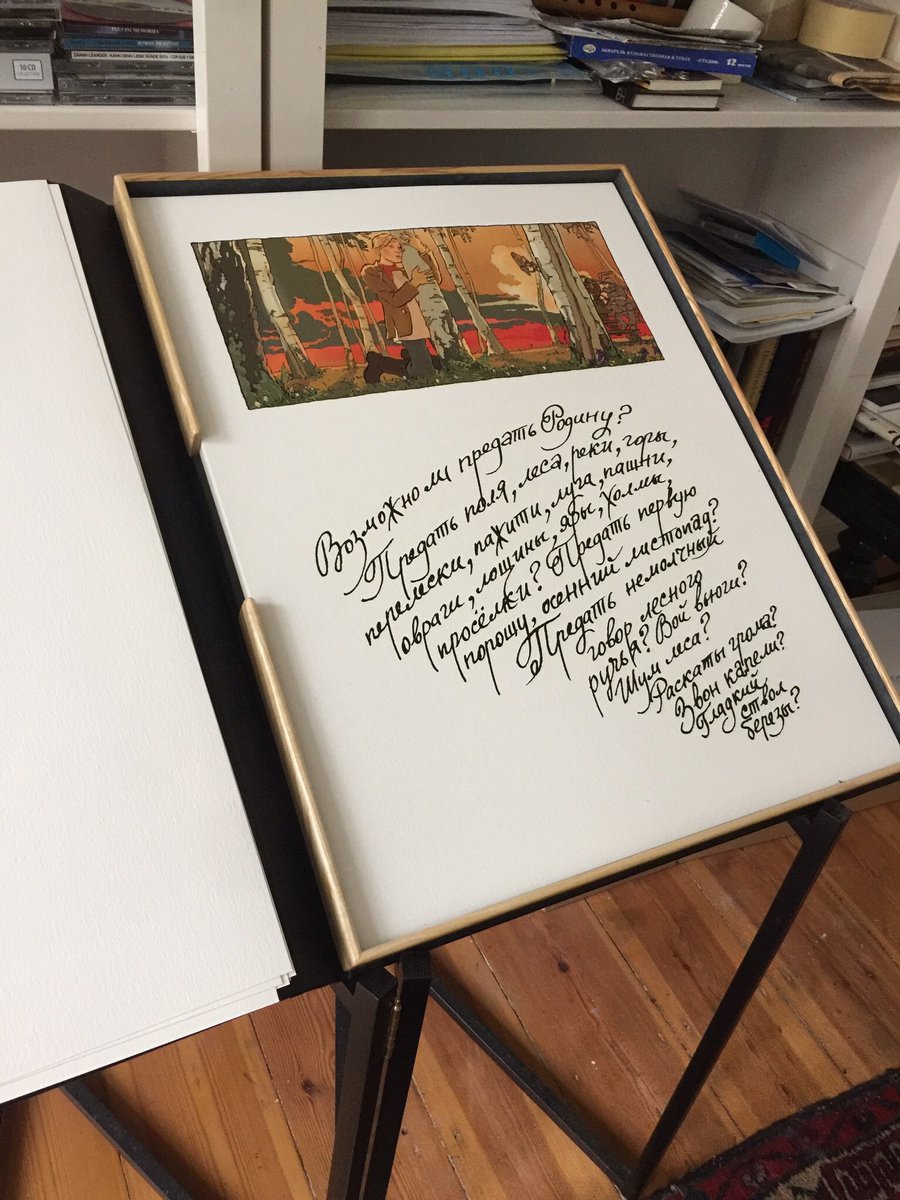 PUCCINI MEMORIES
ZARAH LEANDER: KANN DENN LIEBE SÜNDE SEIN
10 CD
COLLECTION
АКВАРЕЛЬ ХУДОЖЕСТВЕННАЯ В ТУБАХ «СТУДИЯ» 12
Возможно ли предать Родину?
Предать поля, леса, реки, горы,
перелески, пажити, луга, пашни,
овраги, лощины, яры, холмы,
просёлки? Предать первую
порошу, осенний листопад?
Предать немолчный
говор лесного
ручья? Вой вьюги?
Шум леса?
Раскаты грома?
Звон капели?
Гладкий
ствол
березы?